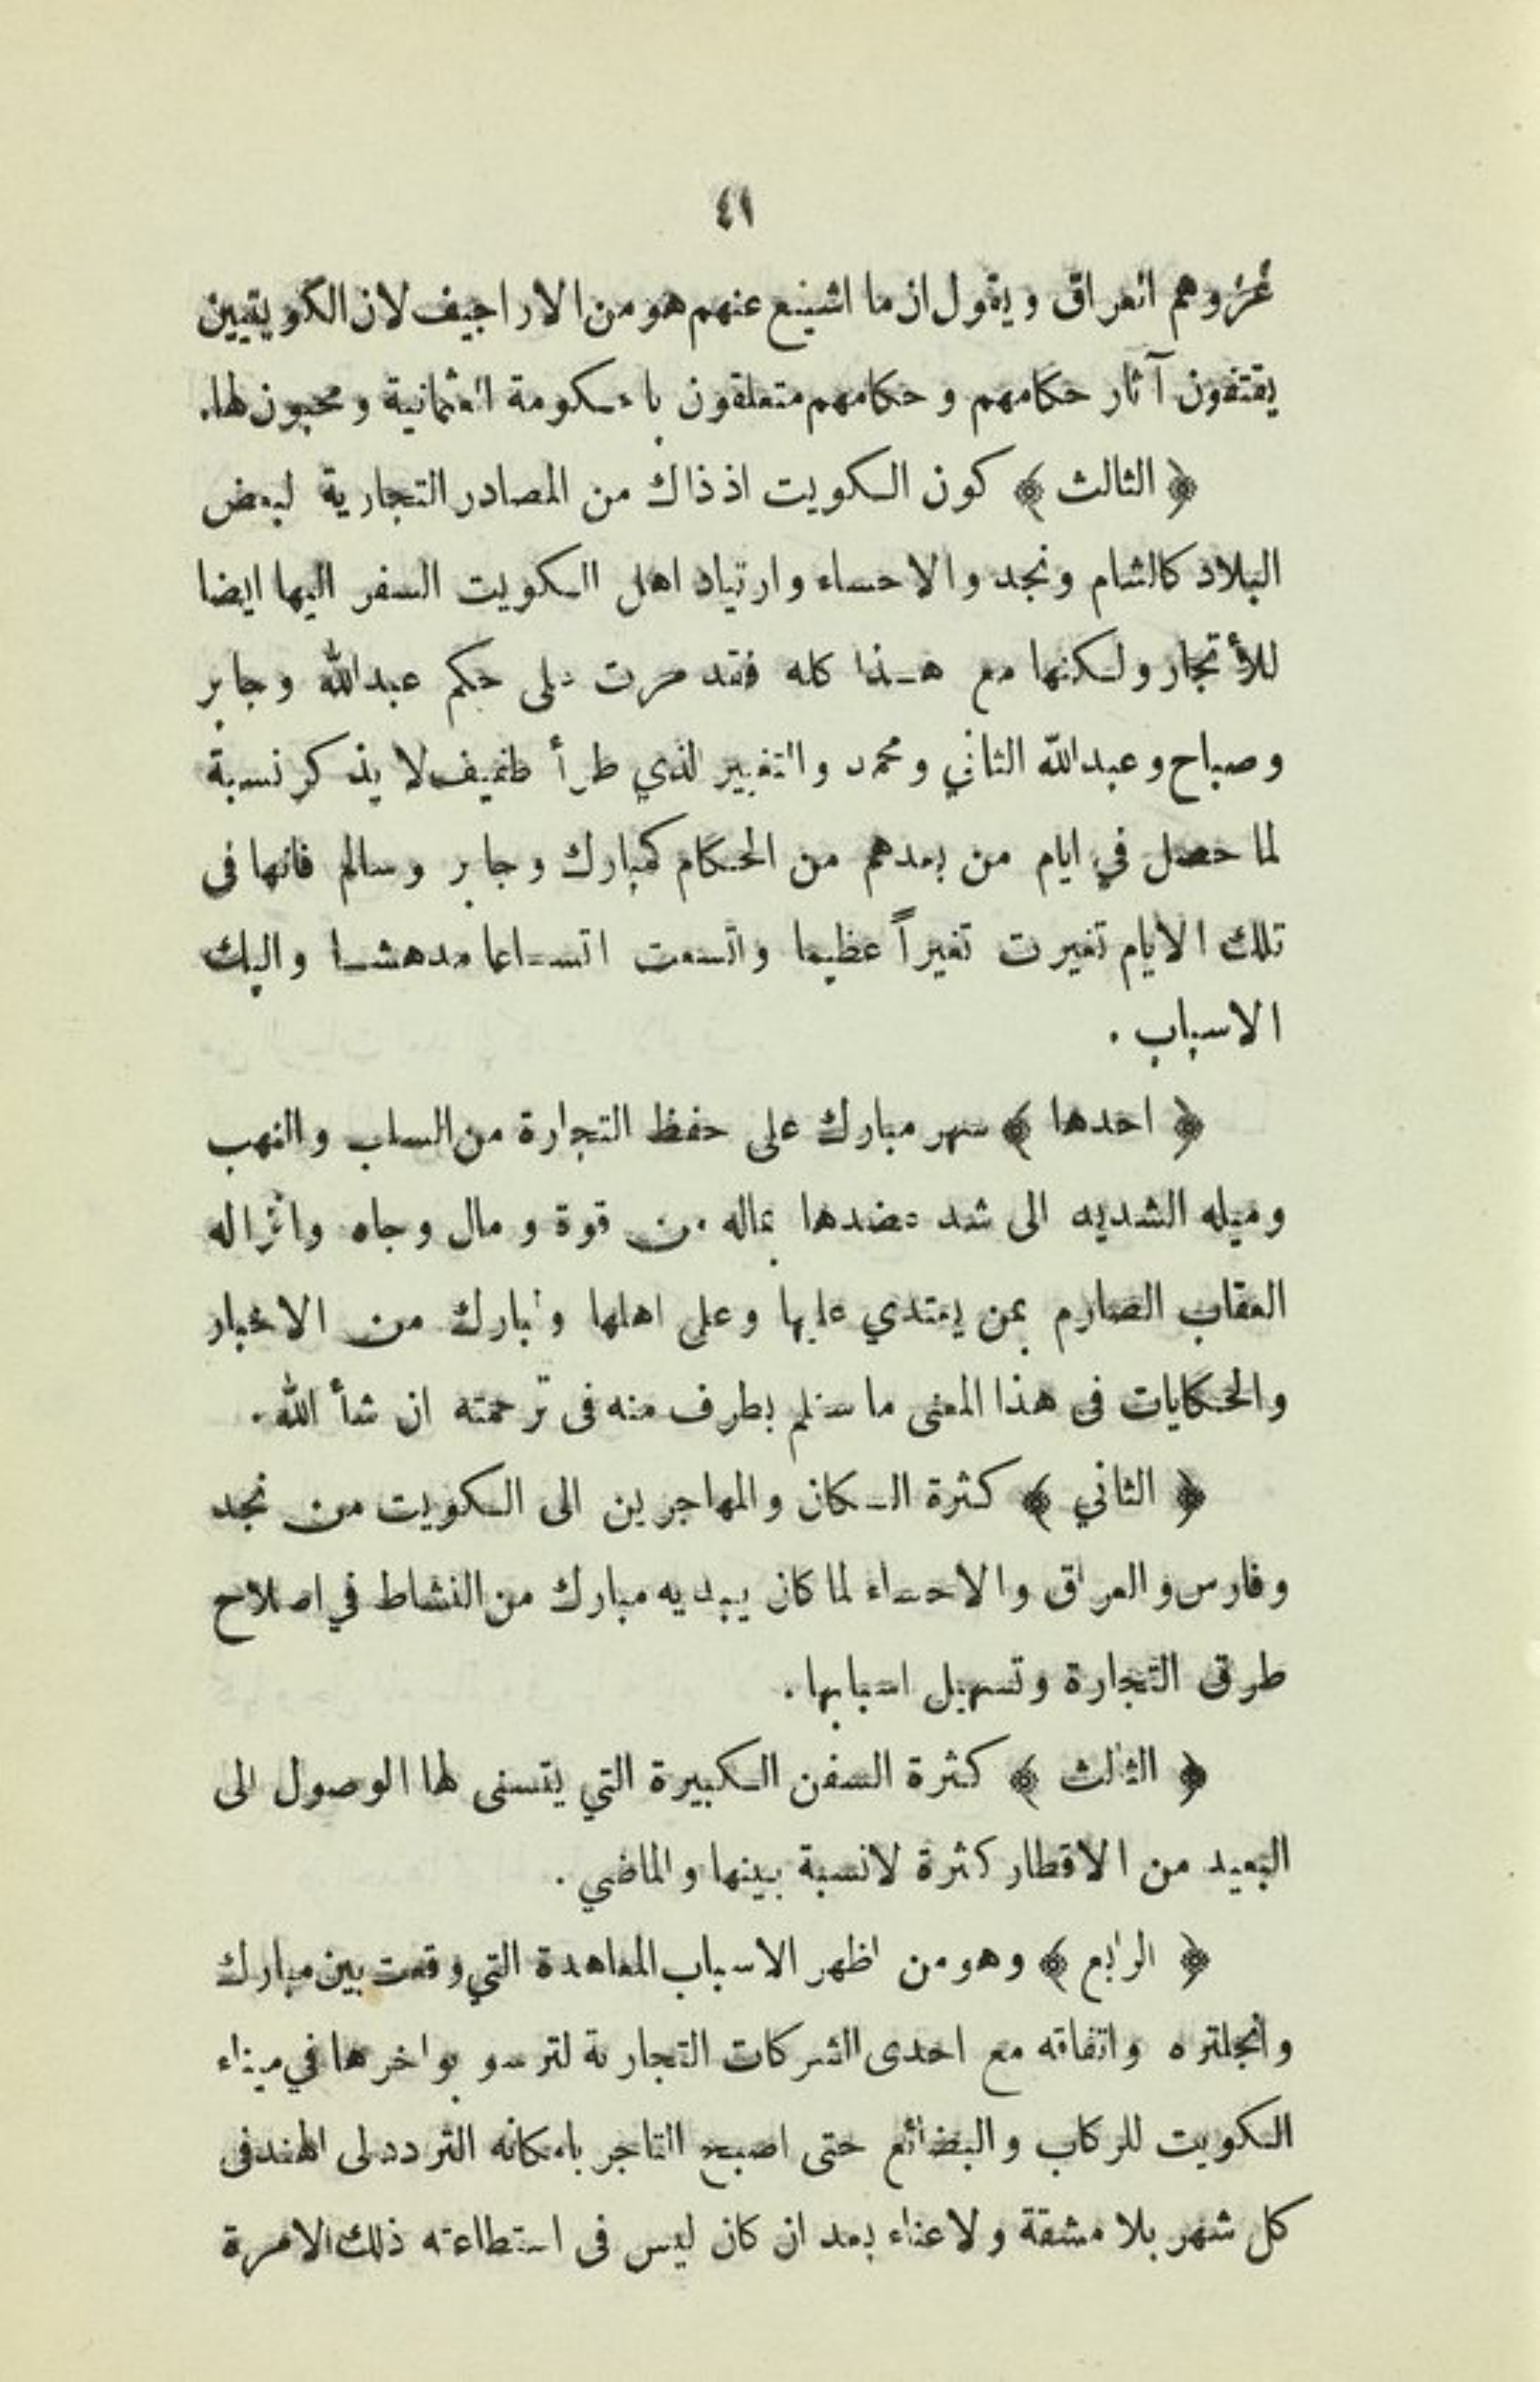 ٤١
غزوهم العراق ويقول ان ما اشيع عنهم هو من الاراجيف لان الكويتيين
يقتفون آثار حكامهم وحكامهم متعلقون بالحكومة العثمانية ومحبون لها.
﴿ الثالث ﴾ كون الكويت اذ ذاك من المصادر التجارية لبعض
البلاد كالشام ونجد والاحساء وارتياد اهل الكويت السفر اليها ايضا
للأتجار ولكنها مع هذا كله فقد مرت على حكم عبدالله وجابر
وصباح وعبدالله الثاني ومحمد والتغيير الذي طرأ طفيف لا يذكر نسبة
لما حصل في ايام من بعدهم من الحكام كمبارك وجابر وسالم فانها فى
تلك الايام تغيرت تغيراً عظيما واتسعت اتساعا مدهشا واليك
الاسباب .
﴿ احدها ﴾ سهر مبارك على حفظ التجارة من السلب والنهب
وميله الشديد الى شد عضدها بماله من قوة ومال وجاه وانزاله
العقاب الصارم بمن يعتدي عليها وعلى اهلها ولمبارك من الاخبار
والحكايات فى هذا المعنى ما سنلم بطرف منه فى ترجمته ان شأ الله.
﴿ الثاني ﴾ كثرة السكان والمهاجرين الى الكويت من نجد
وفارس والعراق والاحساء لما كان يبديه مبارك من النشاط في اصلاح
طرق التجارة وتسهيل اسبابها .
﴿ الثالث ﴾ كثرة السفن الكبيرة التي يتسنى لها الوصول الى
البعيد من الاقطار كثرة لانسبة بينها والماضي .
﴿ الرابع ﴾ وهو من اظهر الاسباب المعاهدة التي وقعت بين مبارك
وانجلتره واتفاقه مع احدى الشركات التجارية لترسو بواخرها في ميناء
الكويت للركاب والبضائع حتى اصبح التاجر بامكانه التردد الى الهند فى
كل شهر بلا مشقة ولا عناء بعد ان كان ليس فى استطاعته ذلك الامرة